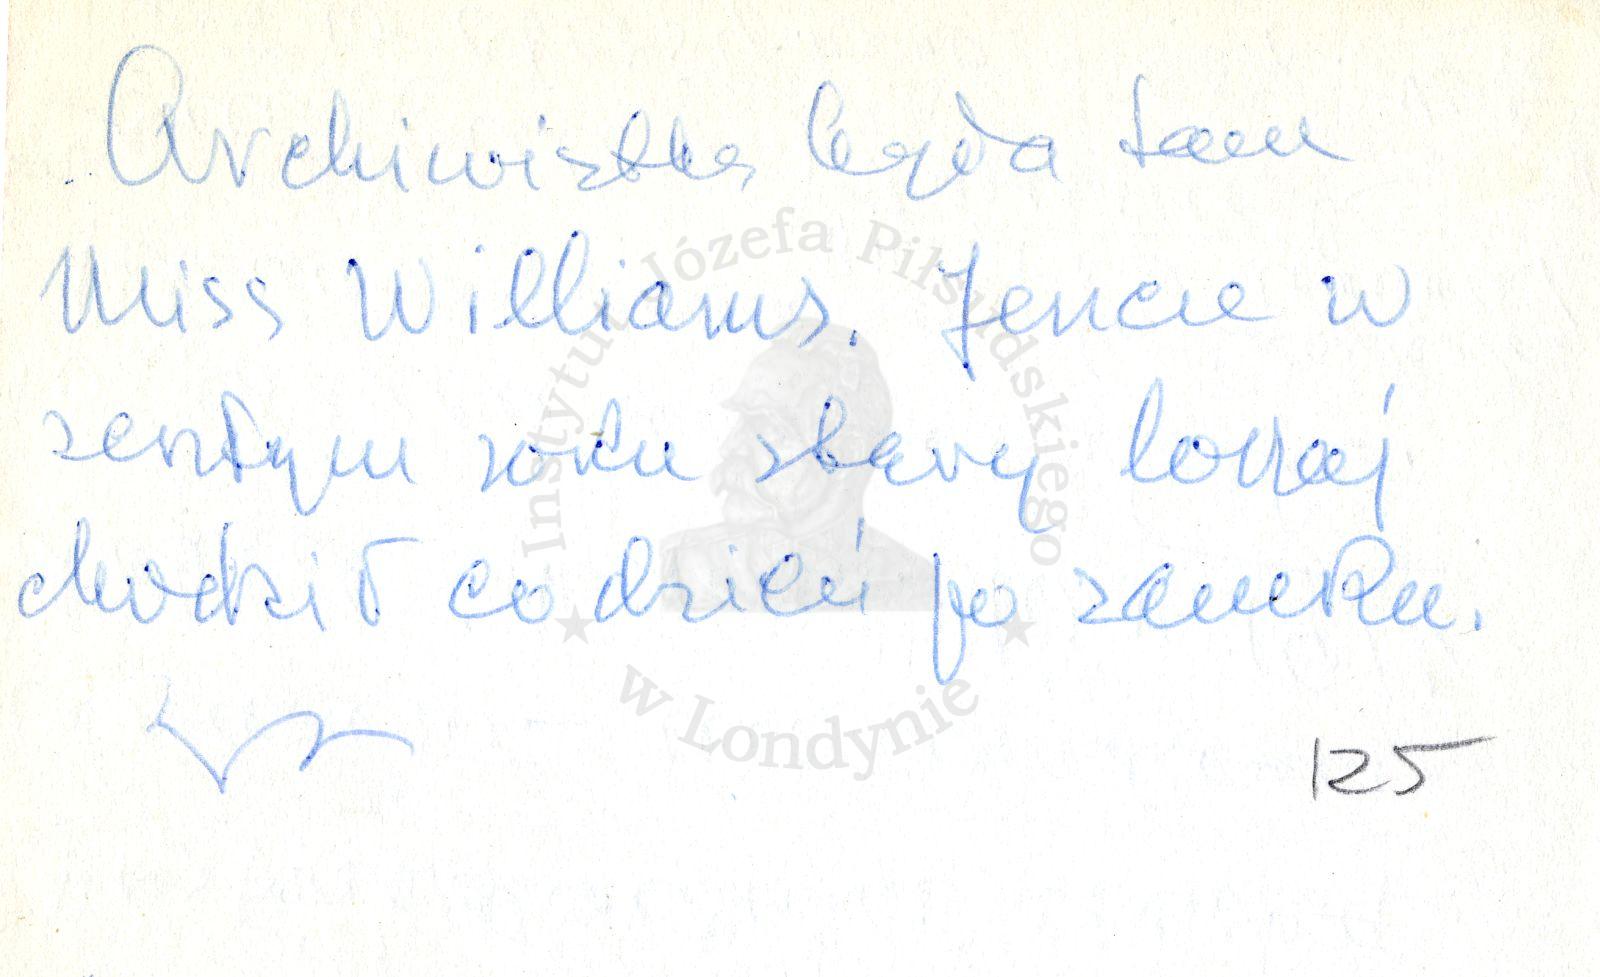 Archiwistką była tam
Miss Williams. Jeszcze w
zeszłym roku stary lokaj
chodził co dzień po zamku.
125
Instytut Józefa Piłsudskiego
w Londynie